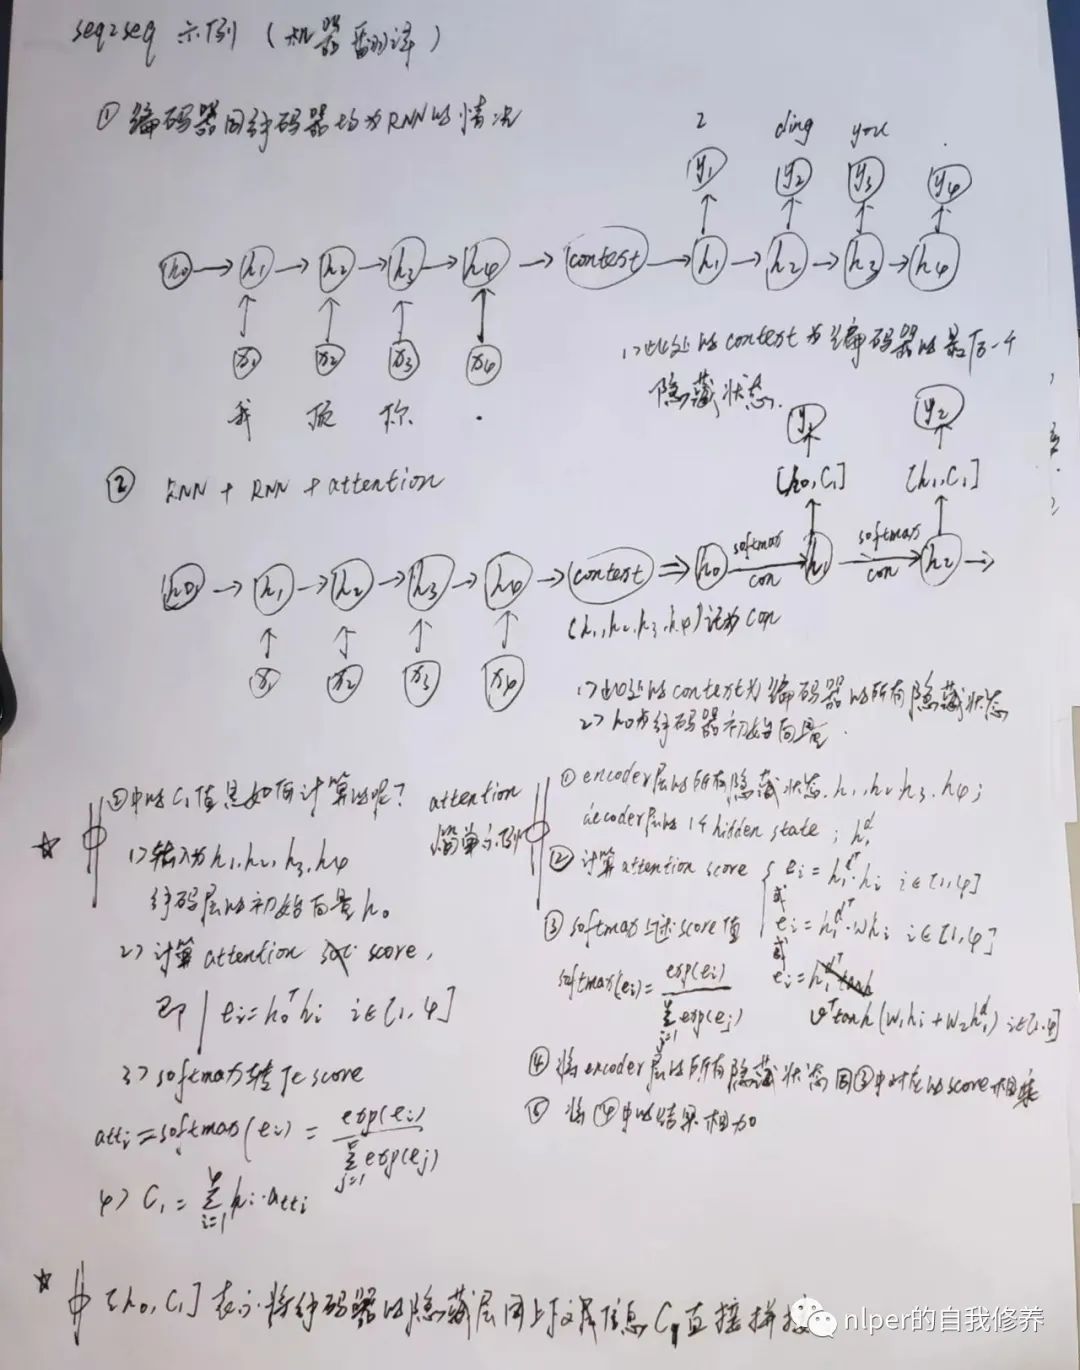 seq2seq 示例 (机器翻译)
① 编码器同解码器均为RNN的情况
I ding you .
y1 y2 y3 y4
h0 → h1 → h2 → h3 → h4 → contest → h1 → h2 → h3 → h4
x1 x2 x3 x4
我 顶 你 .
1> 此处的contest为编码器的最后一个
隐藏状态.
② RNN + RNN + attention
y1 y2
[h0, C1] [h1, C1]
h0 → h1 → h2 → h3 → h4 → contest ⇒ h0 softmax con → h1 softmax con → h2 →
(h1, h2, h3, h4) 记为 con
x1 x2 x3 x4
1> 此处的context为编码器的所有隐藏状态
2> h0为解码器初始向量.
☆ ②中的C1值是如何计算的呢?
1> 输入为h1, h2, h3, h4
解码层的初始向量h0
2> 计算attention score,
即 ei = h0ᵀhi i∈[1,4]
3> softmax转化score
atti = softmax(ei) = exp(ei) / Σj=1 exp(ej)
4> C1 = Σi=1 hi·atti
attention
简单示例
① encoder层的所有隐藏状态. h1, h2, h3, h4;
decoder层的1个hidden state; h1ᵈ
② 计算attention score { ei = h1ᵈᵀ·hi i∈[1,4]
或
ei = h1ᵈᵀ·whi i∈[1,4]
或
ei = vᵀtanh(W1hi + W2h1ᵈ) i∈[1,4]
③ softmax上述score值
softmax(ei) = exp(ei) / Σj=1 exp(ej)
④ 将encoder层的所有隐藏状态同③中对应的score相乘
⑤ 将④中的结果相加
☆ [h0, C1] 表示将解码器的隐藏层同上下文信息C1直接拼接
nlper的自我修养